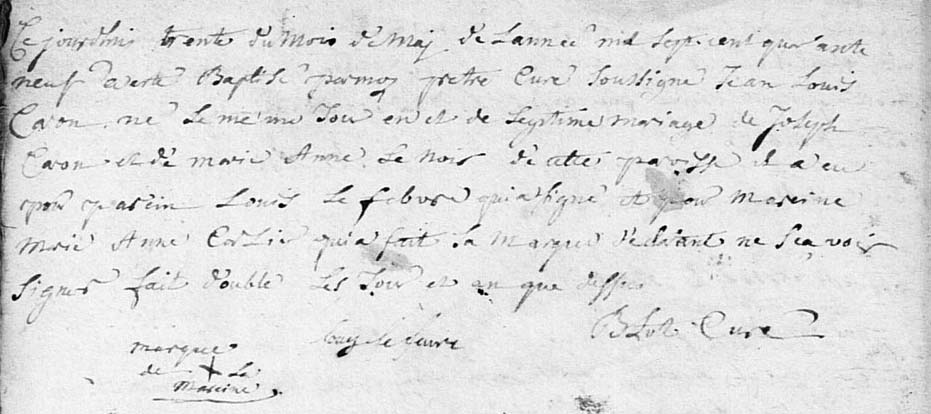 Ce jourdhuis trente du Mois de Maj de Lannee mil Sept cent quarante
neuf a este Baptisé par moy pretre Curé Soussigné Jean Louis
Caron né Le mème Jour en et de Legitime mariage de Joseph
Caron et de marie Anne Le Nois de cette paroisse et a eu
pour parein Louis Le febvre qui a signé et pour Mareine
Marie Anne Carlie qui a fait Sa Marque declarant ne Scavoir
Signer fait double Les Jour et an que dessus
Louy le feuvre Curé
marque
de + La
Mareine